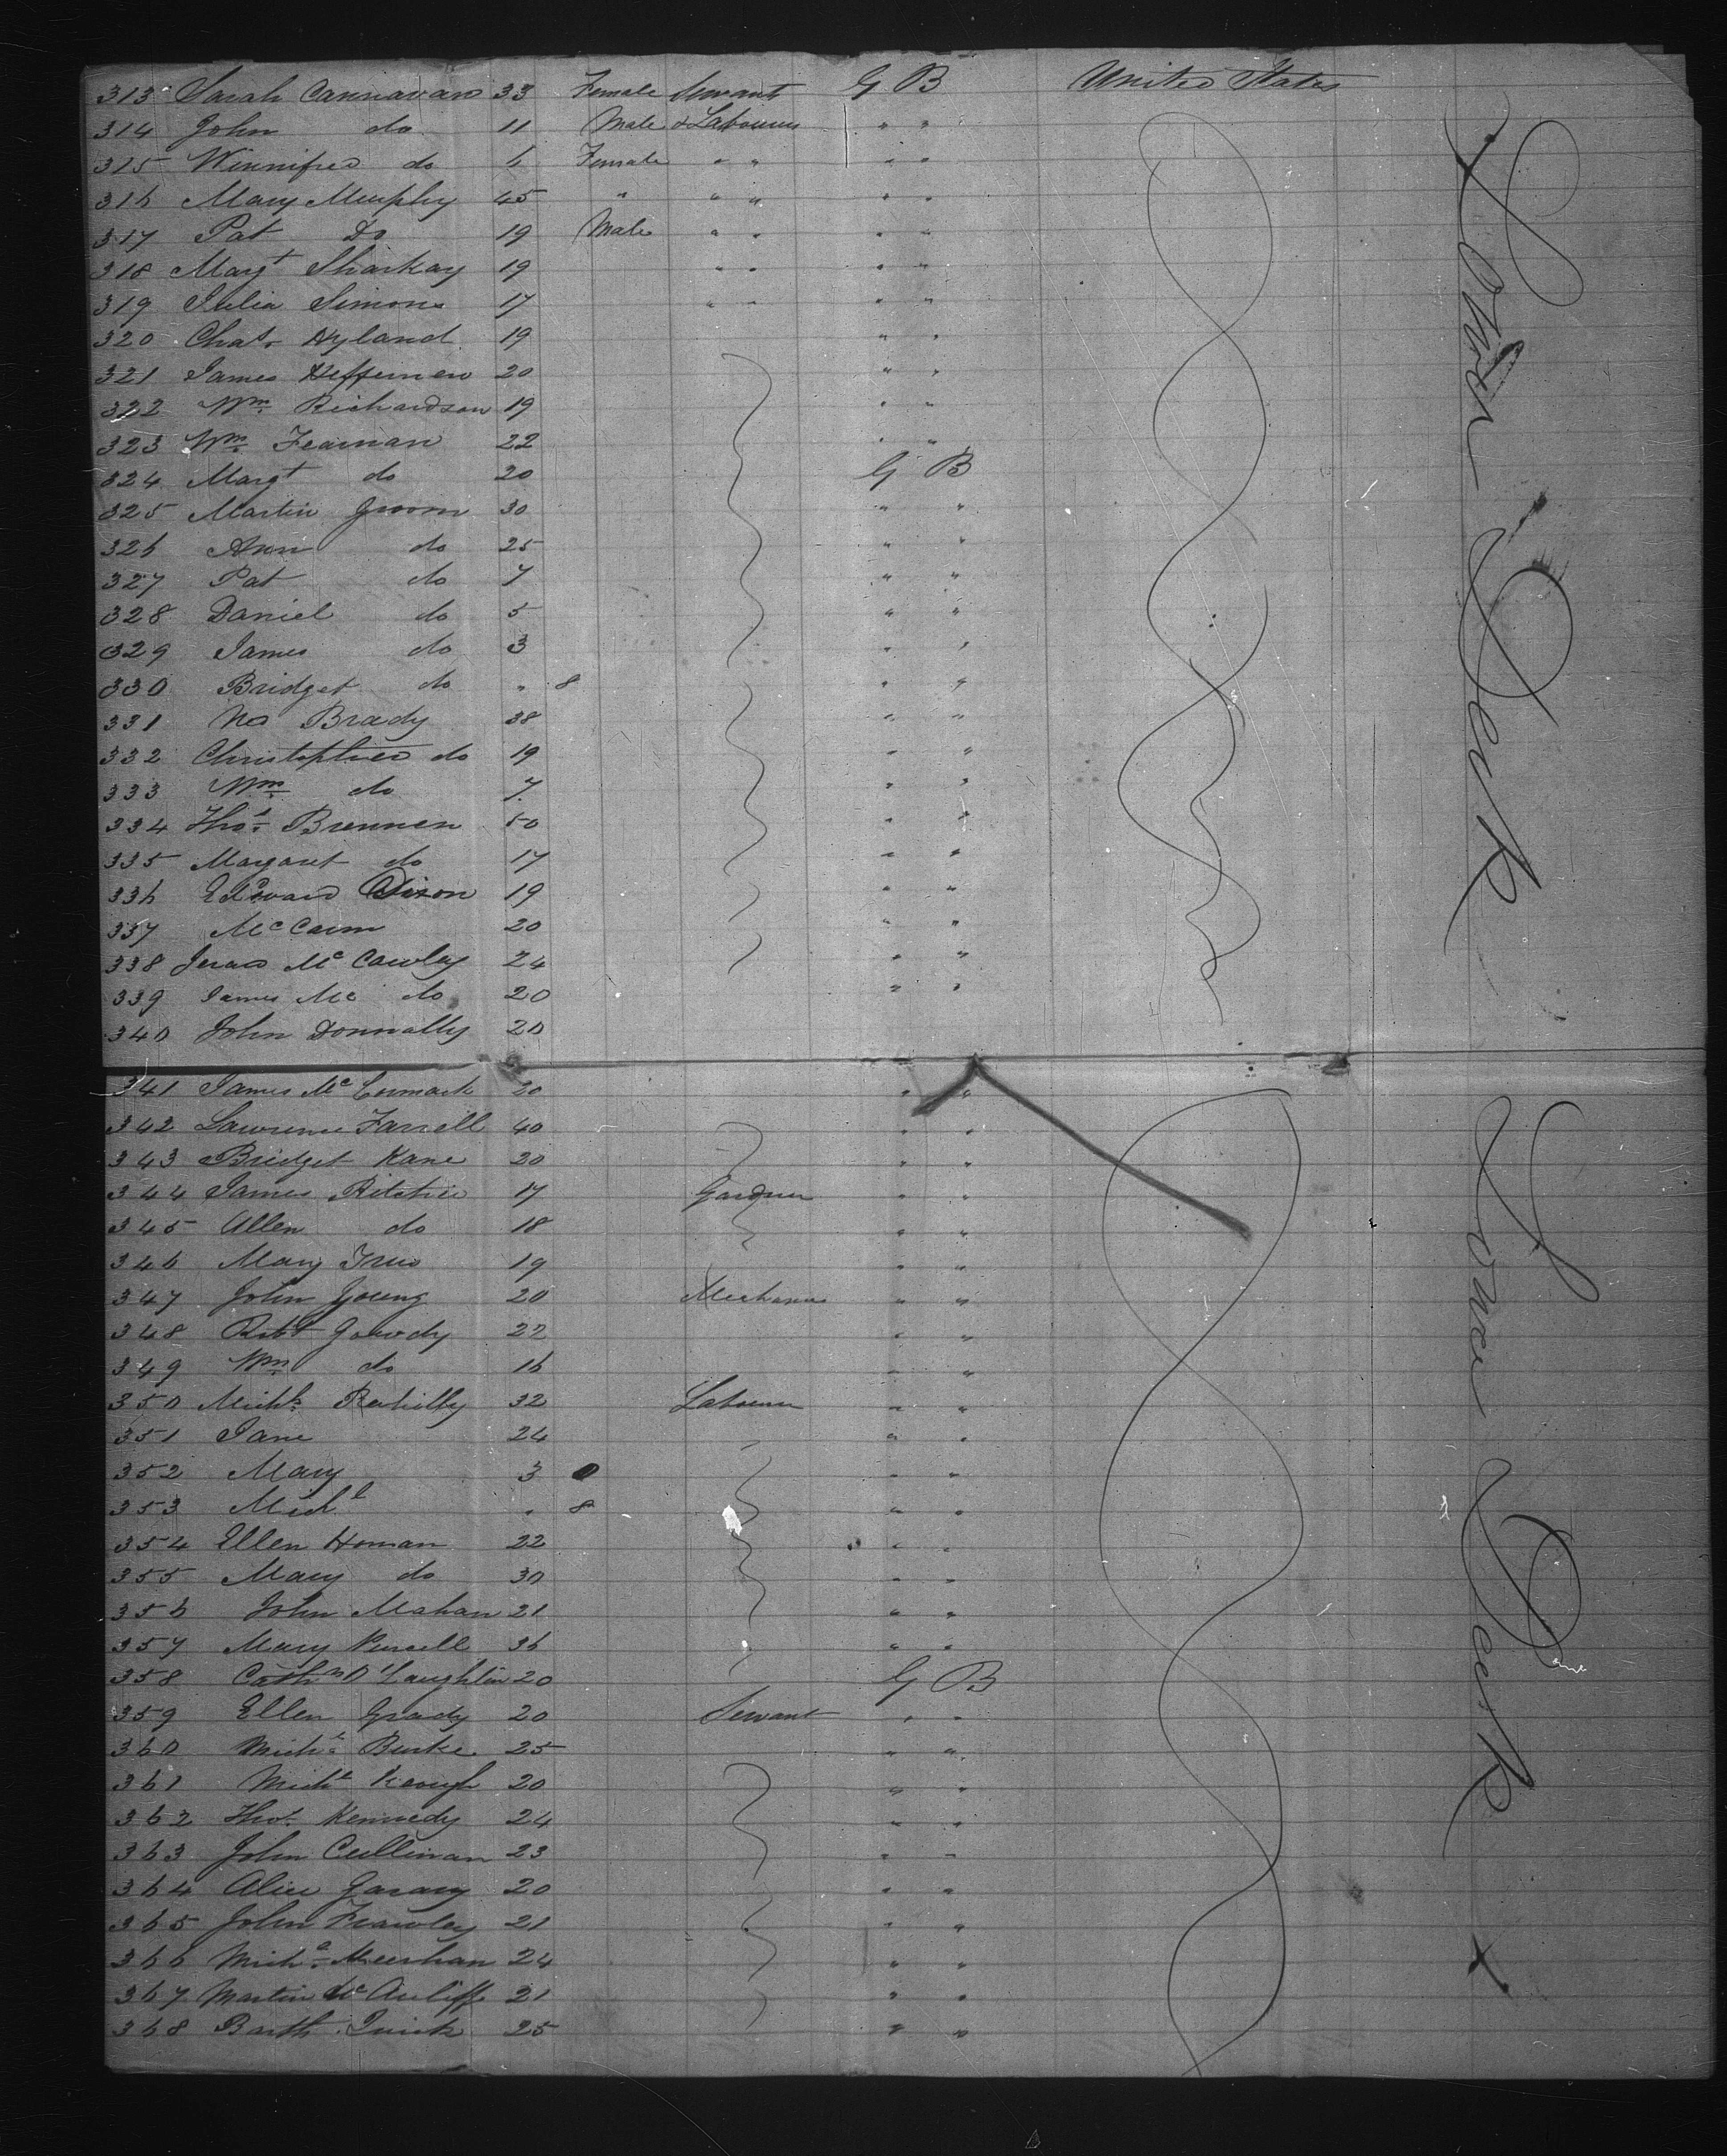 313 Sarah Cannavan 33 Female Servant G B United States
314 John do 11 Male & Labourer " "
315 Winnifred do 6 Female " " " "
316 Mary Murphy 45 " " " " "
317 Pat Do 19 Male " " " "
318 Margt Sharkay 19 " " " "
319 Julia Simons 17 " " " "
320 Chas. Hyland 19 " "
321 James Heffernen 20 " "
322 Wm. Richardson 19 " "
323 Wm. Fearnan 22 " "
324 Margt do 20 G B
325 Martin Groom 30 " "
326 Ann do 25 " "
327 Pat do 7 " "
328 Daniel do 5 " "
329 James do 3 " "
330 Bridget do " 8 " "
331 Brady 38 " "
332 Christopher do 19 " "
333 Wm. do 7 " "
334 Thos. Brennen 50 " "
335 Margaret do 17 " "
336 Edward Dixon 19 " "
337 McCann 20 " "
338 McCawley 24 " "
339 James Mc do 20 " "
340 John Donnally 20
Lower Deck
341 James McCormack 20 " "
342 Lawrence Farrell 40 " "
343 Bridget Kane 20 " "
344 James Ritchie 17 Gardner " "
345 Allen do 18 " "
346 Mary 19 " "
347 John Young 20 Mechanic " "
348 Robt 22 " "
349 Wm. do 16 " "
350 Michl. Rahilly 32 Labourer " "
351 Jane 24 " "
352 Mary 3 " "
353 Michl " 8 " "
354 Ellen Homan 22 " "
355 Mary do 30 " "
356 John Mahan 21 " "
357 Mary Purcell 36 " "
358 Cathn O'Laughlin 20 G B
359 Ellen Grady 20 Servant " "
360 Michl. Burke 25 " "
361 Michl Keough 20 " "
362 Thos. Kennedy 24 " "
363 John Cullinan 23 " "
364 Alice Garavy 20 " "
365 John Frawley 21 " "
366 Michl. Meechan 24 " "
367 Martin McAuliffe 21 " "
368 Barth. Quirk 25 " "
Lower Deck